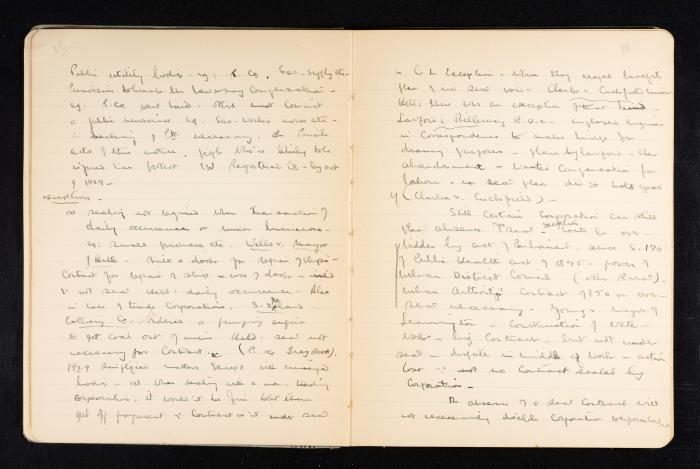 Public utility bodies - eg: R. Co, Gas - supply etc -
Permission to break the Law - pay compensation -
eg: R.Co. must build. Others must commit
a public nuisance eg. Gas-works noise etc -
∴ of Plt necessary. In Private
acts of this nature, people who're likely to be
injured can protest (3) Registered Co - by act
of 1929 -
exceptions.
a sealing not required when transaction of
daily occurrence or minor businesses -
eg: small purchase etc. Wells v. Mayor
of Hull. Built a dock for repair of ships -
Contract for repair of ship & use of dock -
not seal Held: daily occurrence - Also
in case of trade Corporations. S. of Ireland
Colliery Co. ordered a pumping engine
to get coal out of mine Held: seal not
necessary for Contract. (P. 162 Greybook).
1929 simplified matters Except with
bodies - (2) When dealing with a non-trading
corporation, it wouldn't be fair to let them
get off payment ∵ Contract isn't under seal
55
∴ C.L. Exception - when they reaped benefit
plea of no seal void - Clarke v. Cuckfield Union
Held: there was an exception of that kind.
Lawford v. Billericay R.D.C - employed engineer
in Correspondence to make for
drainage purposes - plans by Lawford - then
abandonment - Wanted Compensation for
labour - no seal plea didn't hold good
(Clarke v. Cuckfield) -
Still Certain Corporation can still
plea absence of seal - exception can't be over-
ridden by act of Parliament. Hence S. 174
of Public Health act of 1875 - powers of
Urban District Council (also Rural).
Urban Authority Contract of £50 or over -
seal necessary. Young v. Mayor of
Leamington - Construction of Water-
works - big Contract - but not under
seal - dispute in middle of work - action
lost ∵ not no Contract sealed by
Corporation -
The absence of a seal Contract will
not necessarily disable Corporation